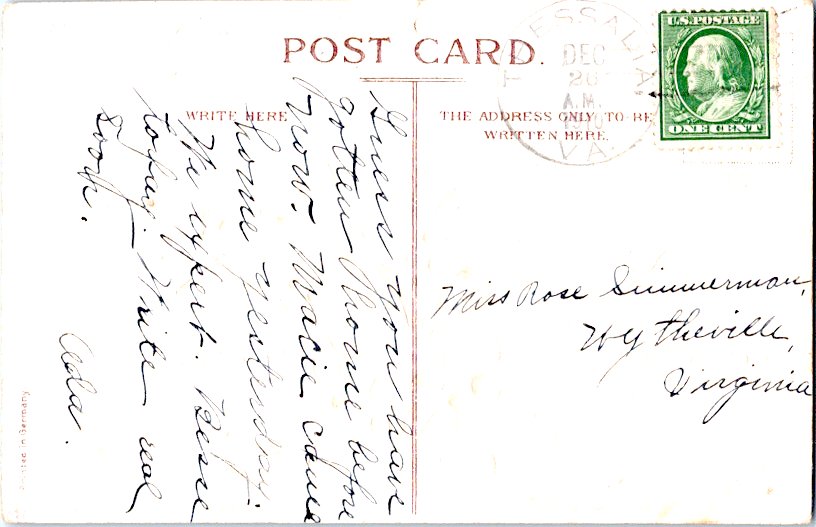 POST CARD.
WRITE HERE
THE ADDRESS ONLY TO BE
WRITTEN HERE.
U.S. POSTAGE
ONE CENT
DEC
20
A.M.
VA
Guess you have
gotten home before
now. Macie came
home yesterday.
We expect Bessie
today. Write real
soon.
Ada.
Miss Rose Simmerman,
Wytheville,
Virginia
Printed in Germany